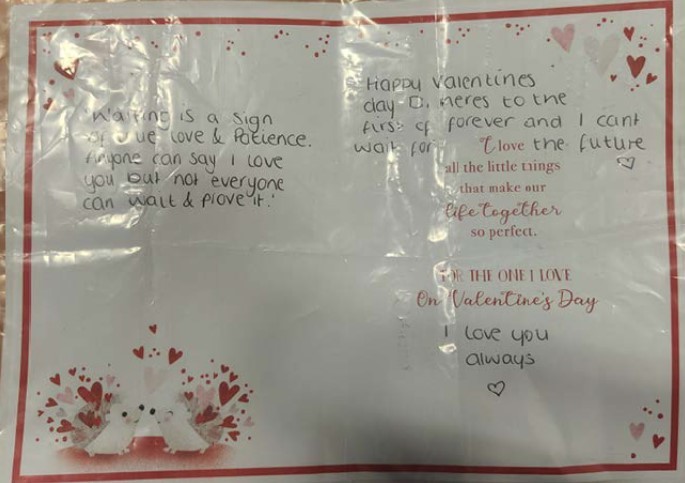 'Waiting is a sign
of true love & Patience.
Anyone can say I love
you but not everyone
can wait & prove it.'
Happy Valentines
day D. heres to the
first of forever and I cant
wait for the future
I love
all the little things
that make our
life together
so perfect.
FOR THE ONE I LOVE
On Valentine's Day
I love you
always